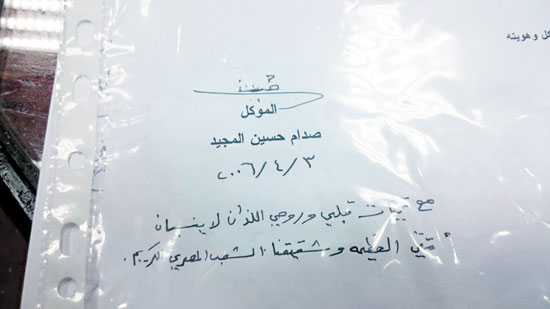 كل وهويته
الموكل
صدام حسين المجيد
٢٠٠٦/٤/٣
مع تحيات قلبي وروحي اللذان لا ينسيان
أمتي العظيمه وشقيقنا الشعب المصري الكريم.